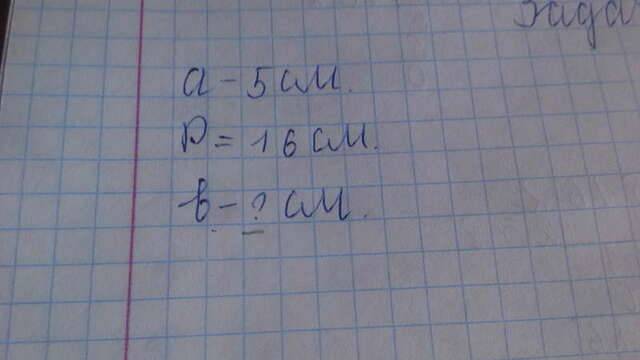 Зада
a - 5 см.
P = 16 см.
b - ? см.